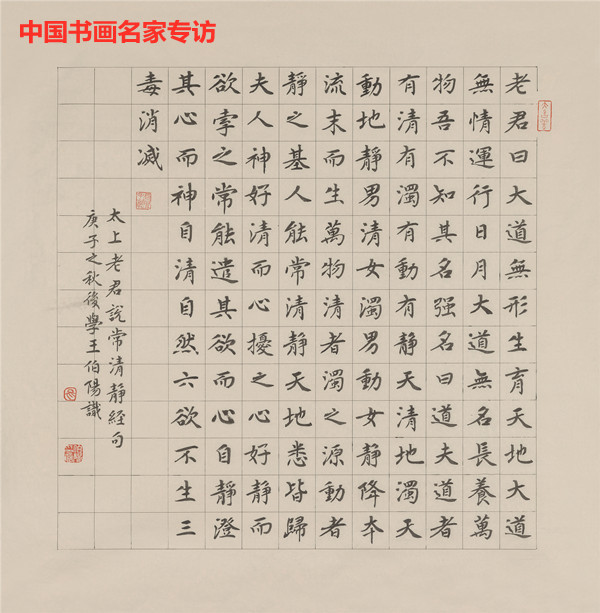 中国书画名家专访
老君曰大道無形生育天地大道
無情運行日月大道無名長養萬
物吾不知其名强名曰道夫道者
有清有濁有動有静天清地濁天
動地静男清女濁男動女静降本
流末而生萬物清者濁之源動者
静之基人能常清静天地悉皆歸
夫人神好清而心擾之心好静而
欲牽之常能遣其欲而心自静澄
其心而神自清自然六欲不生三
毒消滅
太上老君說常清静經句
庚子之秋後學王伯陽識